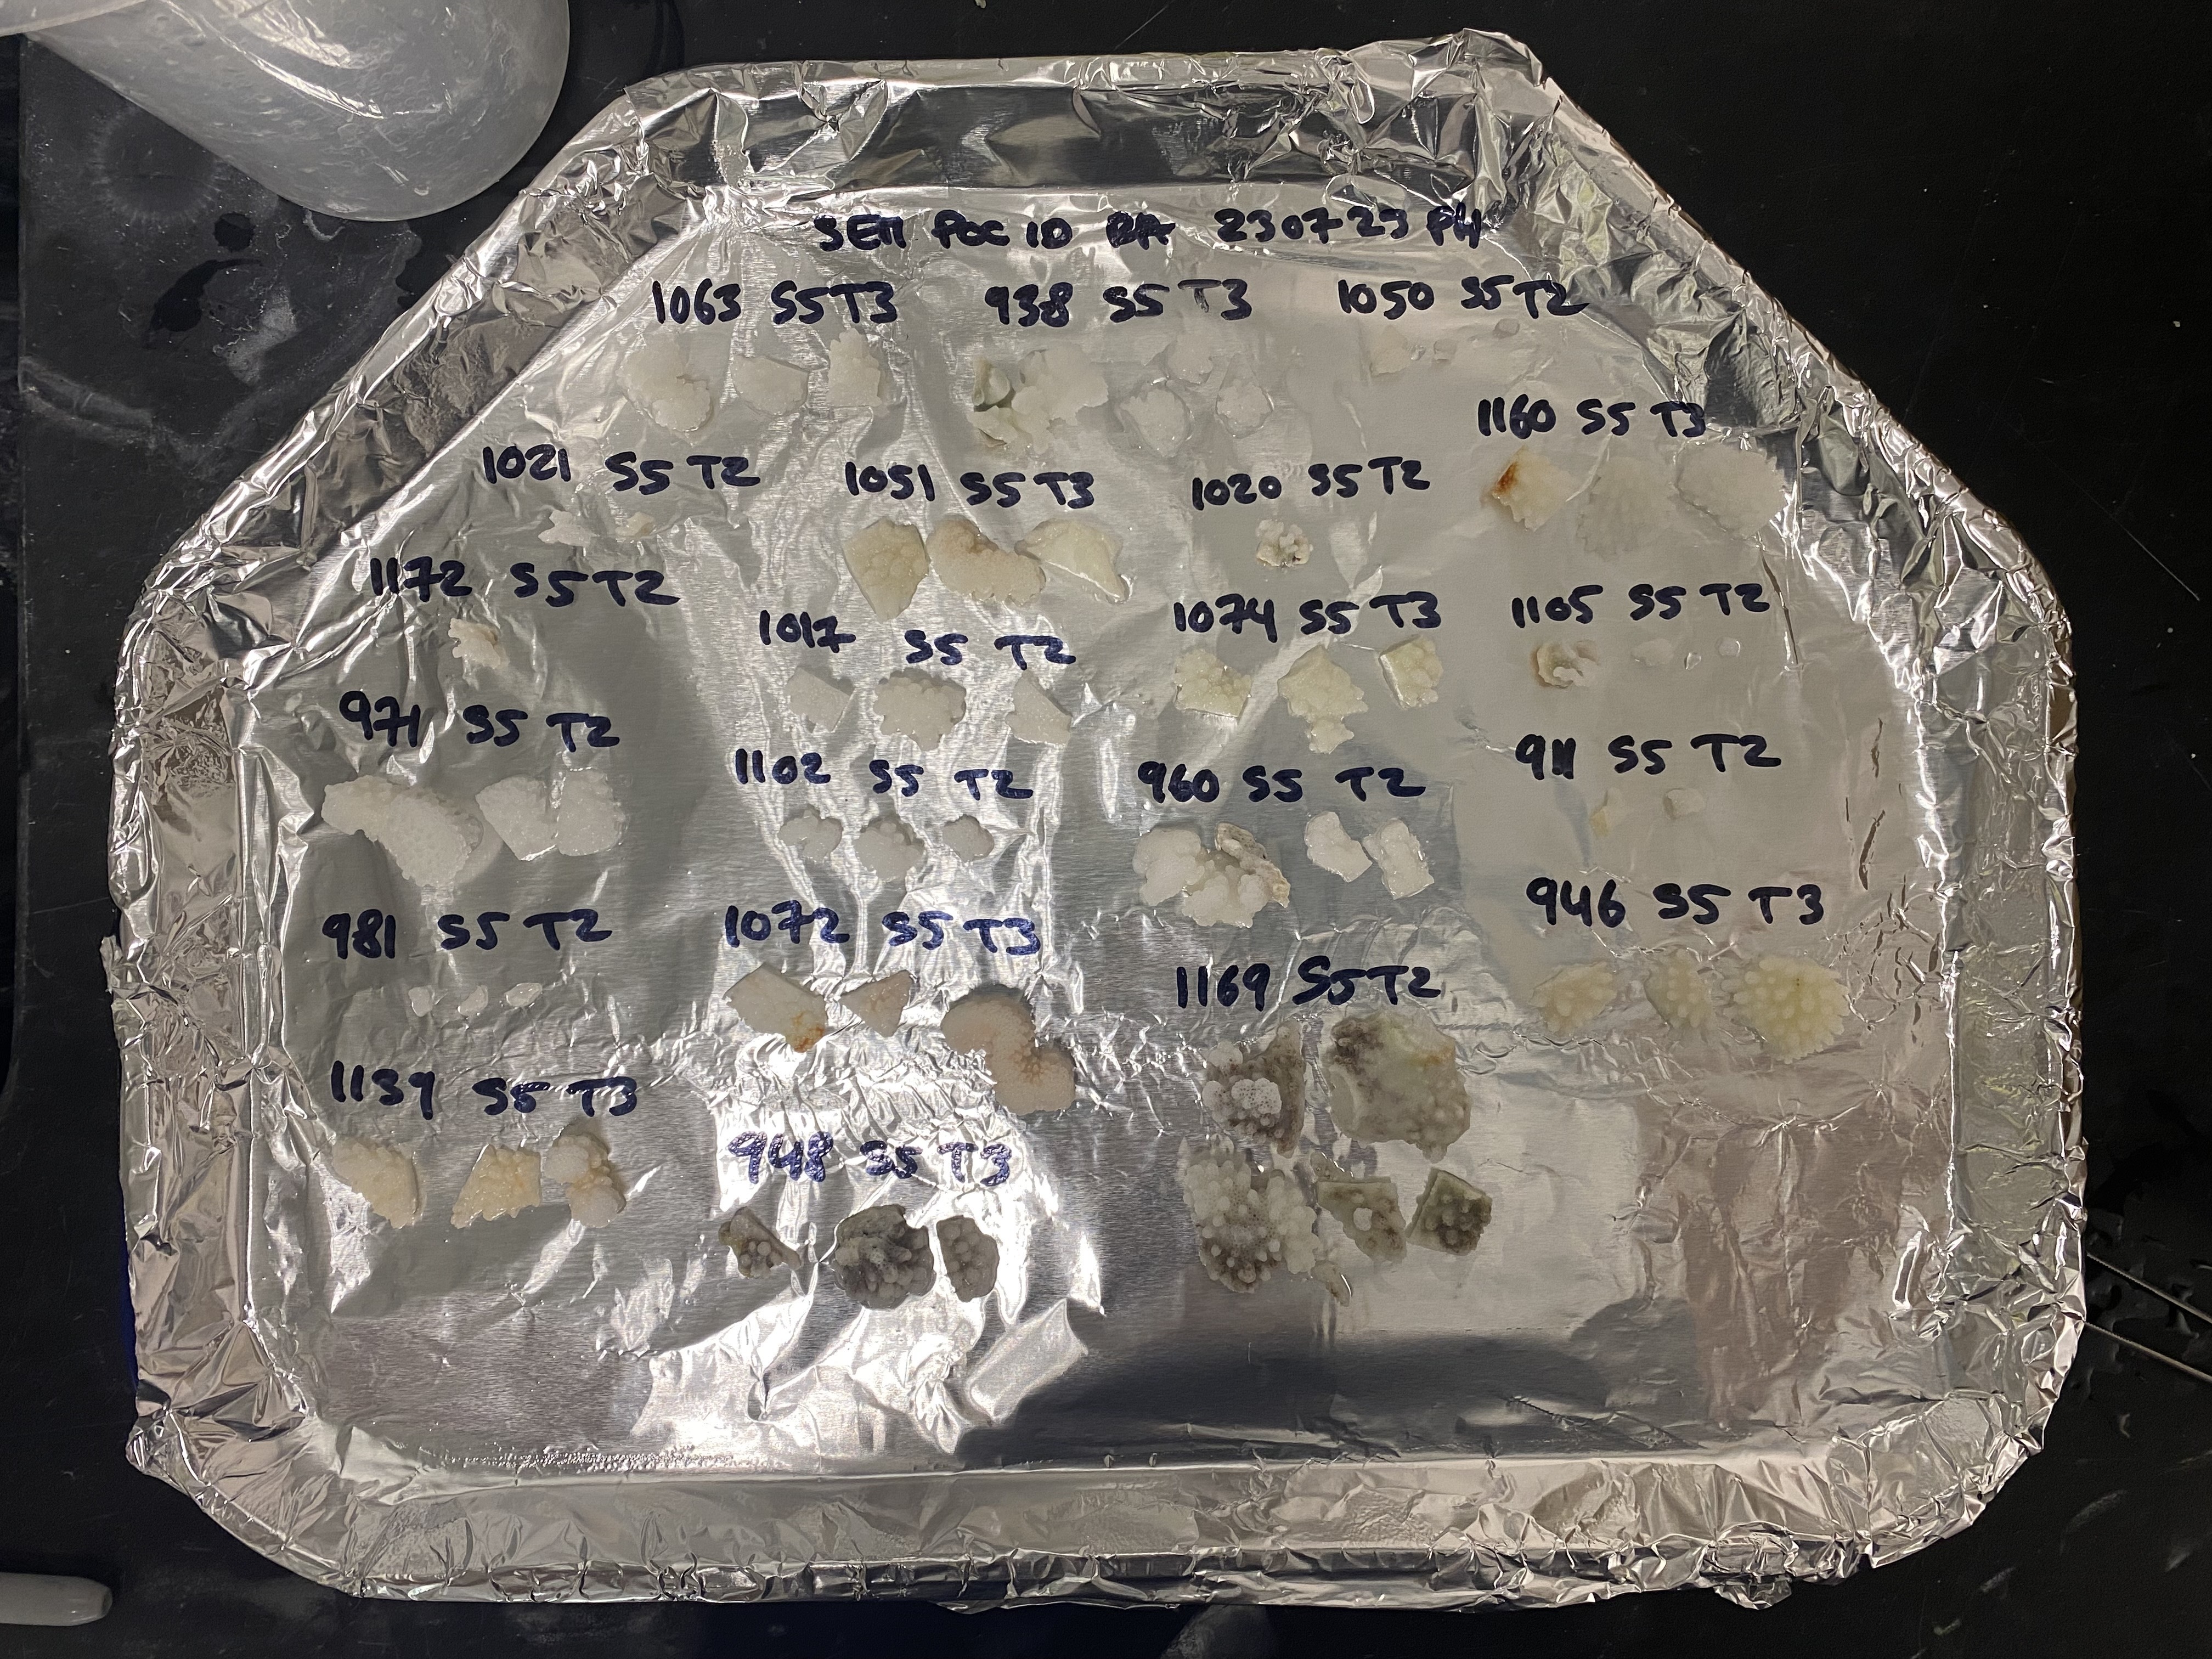 SEM POC ID 230723 PM
1063 S5 T3 938 S5 T3 1050 S5 T2
1160 S5 T3
1021 S5 T2 1051 S5 T3 1020 S5 T2
1172 S5 T2
1017 S5 T2 1074 S5 T3 1105 S5 T2
971 S5 T2
1102 S5 T2 960 S5 T2 911 S5 T2
981 S5 T2 1072 S5 T3 946 S5 T3
1169 S5 T2
1139 S5 T3
948 S5 T3